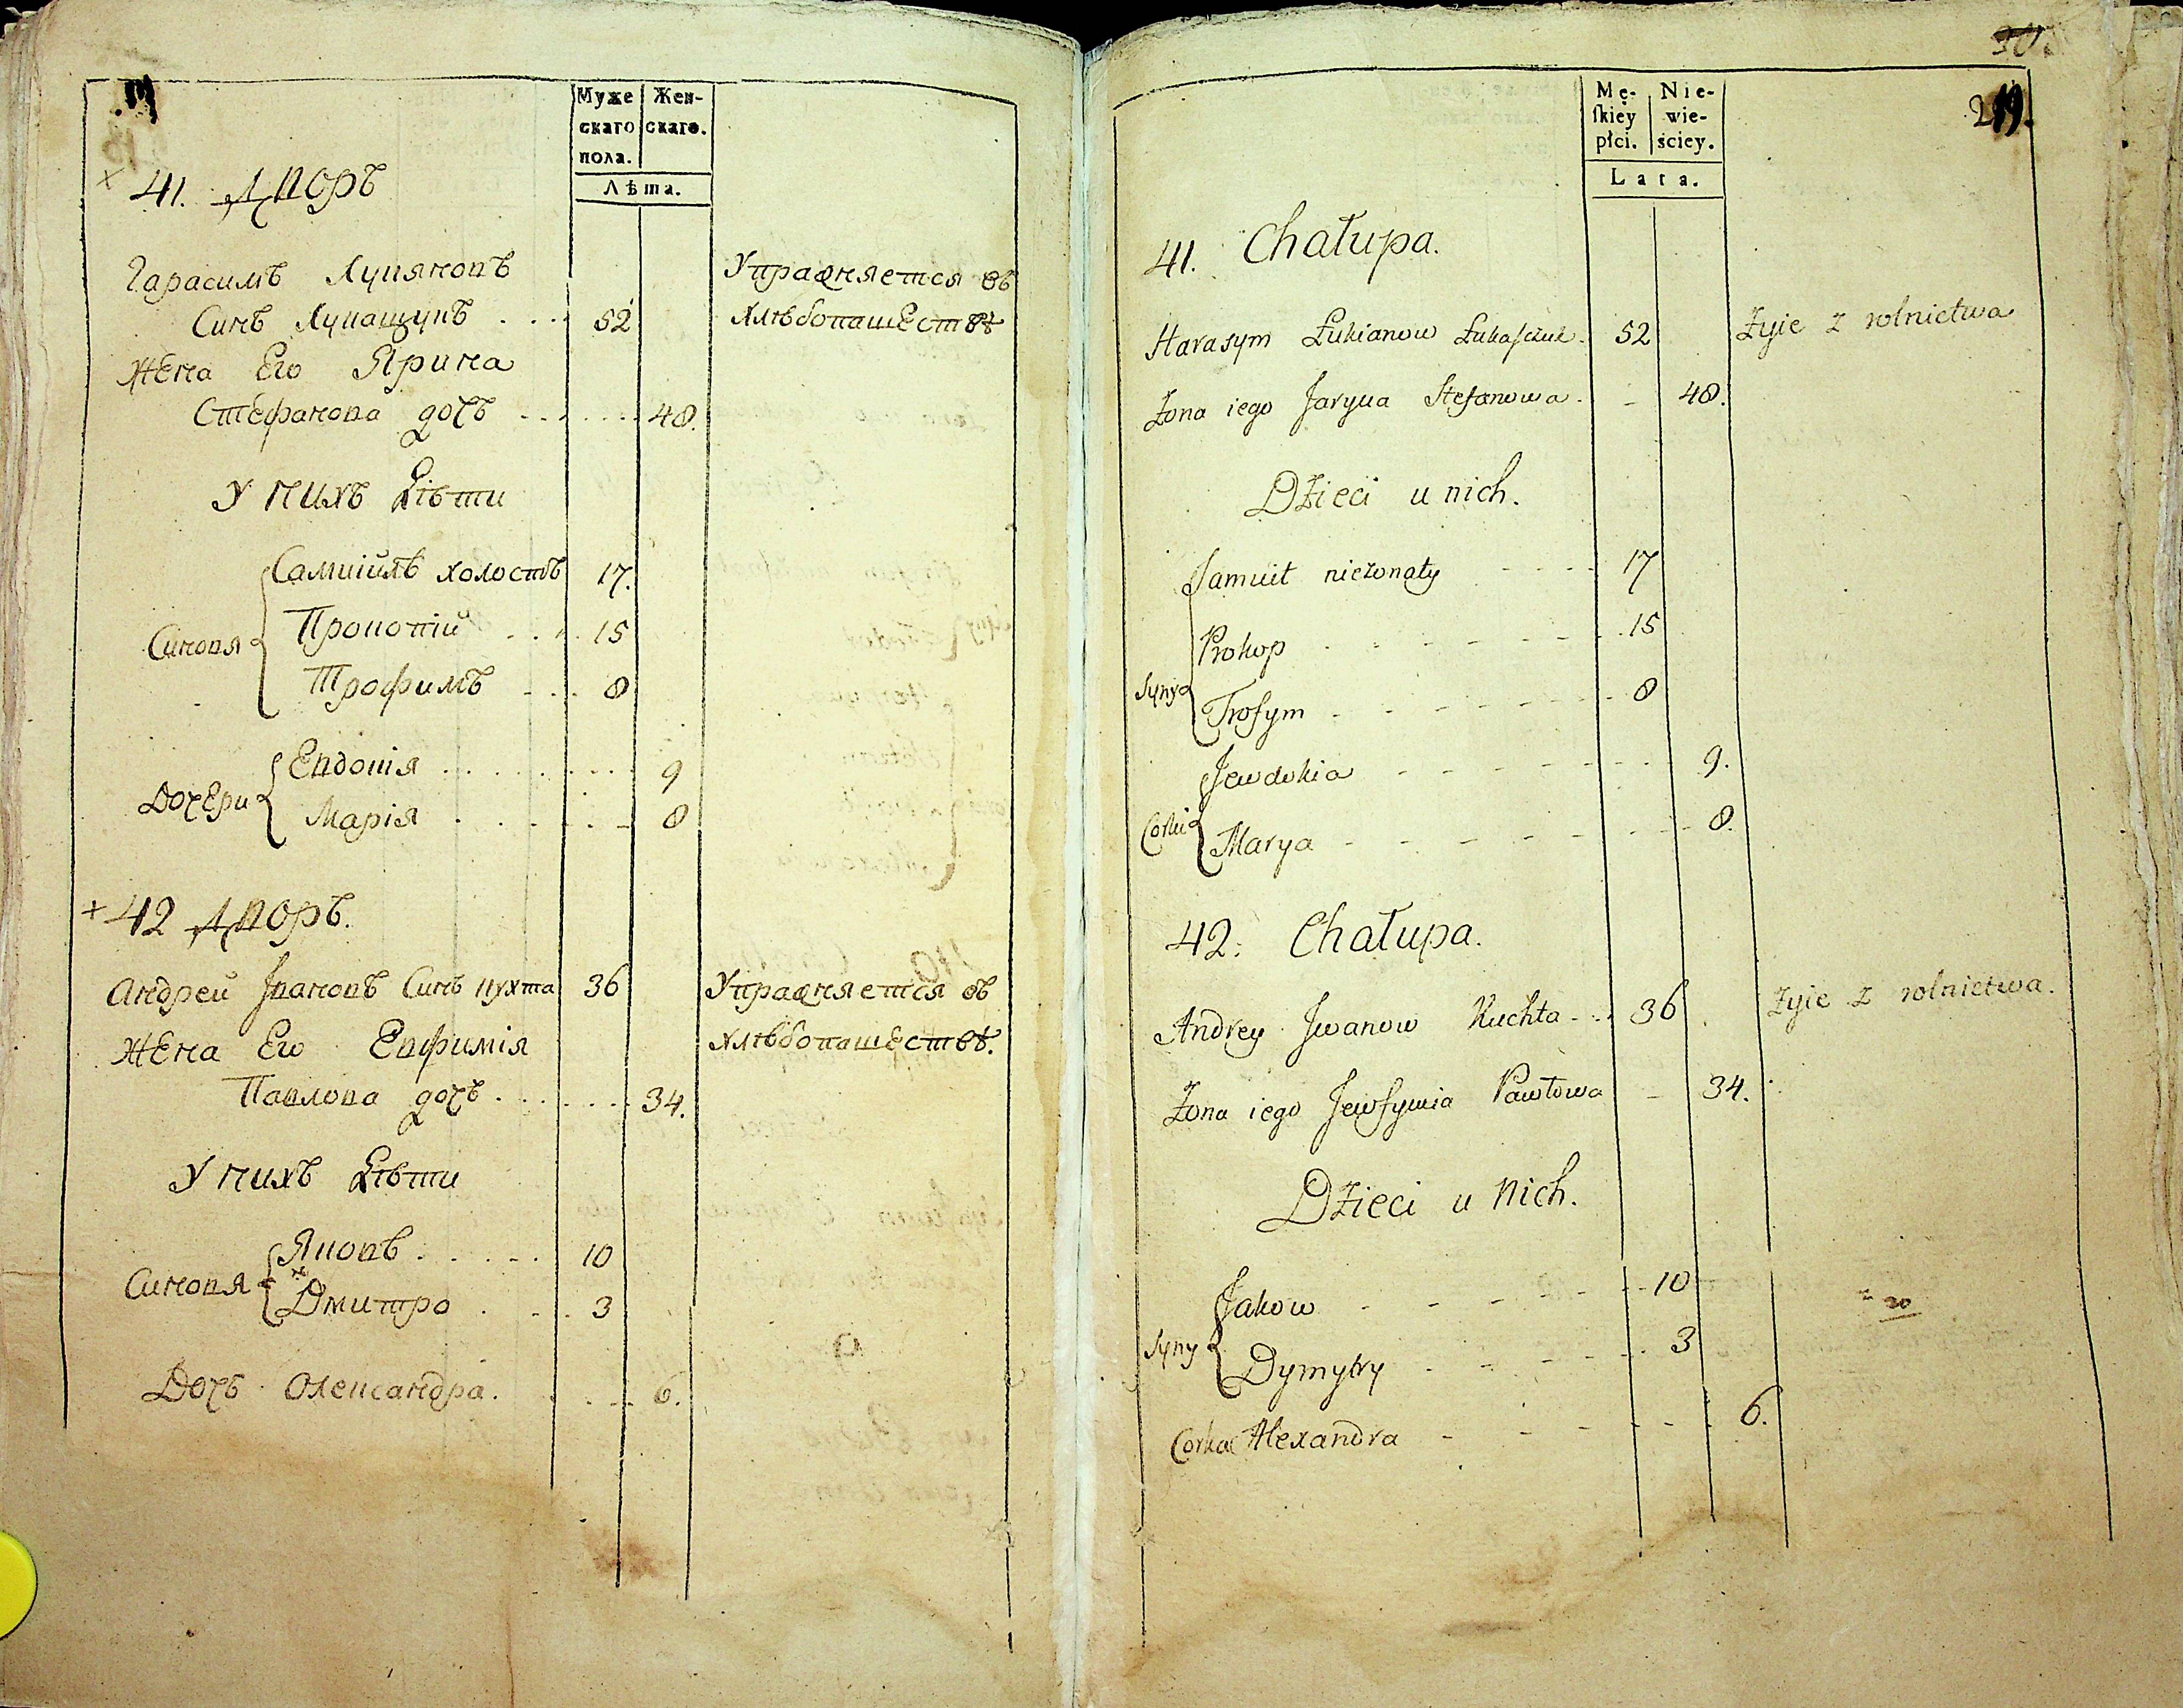 Муже
скаго
пола.
Жен-
скаго.
Лѣта.
41. Дворъ
Гарасимъ Лукяновъ
Синъ Лукащукъ 52
Упражняется въ
хлѣбопашествѣ
Жена Его Ярина
Стефанова дочъ 48.
У нихъ дѣти
Синовя
Самийлъ холостъ 17.
Прокопий 15
Трофимъ 8
Дочери
Евдокія 9
Марія 8
+ 42 Дворъ.
Андрей Івановъ Синъ кухта 36
Упражняется въ
хлѣбопашествѣ.
Жена Его Евфимія
Павлова дочъ 34.
У нихъ дѣти
Синовя
Яковъ 10
Дмитро 3
Дочъ Олександра. 6.
Mę-
ſkiey
płci.
Nie-
wie-
ściey.
Lata.
41. Chałupa.
Harasym Łukianow Łukaſzuk 52 Żyie z rolnictwa
Żona iego Jaryna Stefanowa 48.
Dżieci u nich.
Syny
Samuił nieżonaty 17
Prokop 15
Trofym 8
Corki
Jewdokia 9.
Marya 8.
42. Chałupa.
Andrey Jwanow Kuchta 36 Żyie z rolnictwa.
Żona iego Jewfymia Pawłowa 34.
Dżieci u nich.
Syny
Jakow 10
Dymytry 3
Corka Alexandra 6.